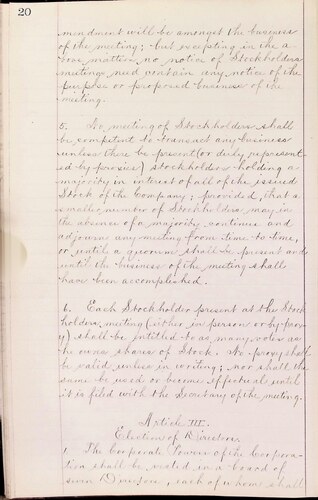 20
mendment will be amongst the business
of the meeting; but excepting in the a
bove matters no notice of Stockholders
meetings need contain any notice of the
purpose or proposed business of the
meeting.
5. No meeting of Stockholders shall
be competent to transact any business
unless there be present (or duly represent
ed by proxies) stockholders holding a
majority in interest of all of the issued
Stock of the Company; provided, that a
smaller number of Stockholders may in
the absence of a majority continue and
adjourn any meeting from time to time,
or until a quorum shall be present and
until the business of the meeting shall
have been accomplished.
6. Each Stockholder present at the Stock
holders meeting (either in person or by proxy
) shall be intitled to as many votes as
he owns shares of Stock. No proxy shall
be valid unless in writing; nor shall the
same be used or become effectual until
it is filed with the Secretary of the meeting.
Article III.
Election of Directors
1. The Corporate Powers of the Corpora-
tion shall be vested in a board of
seven Directors, each of whom shall